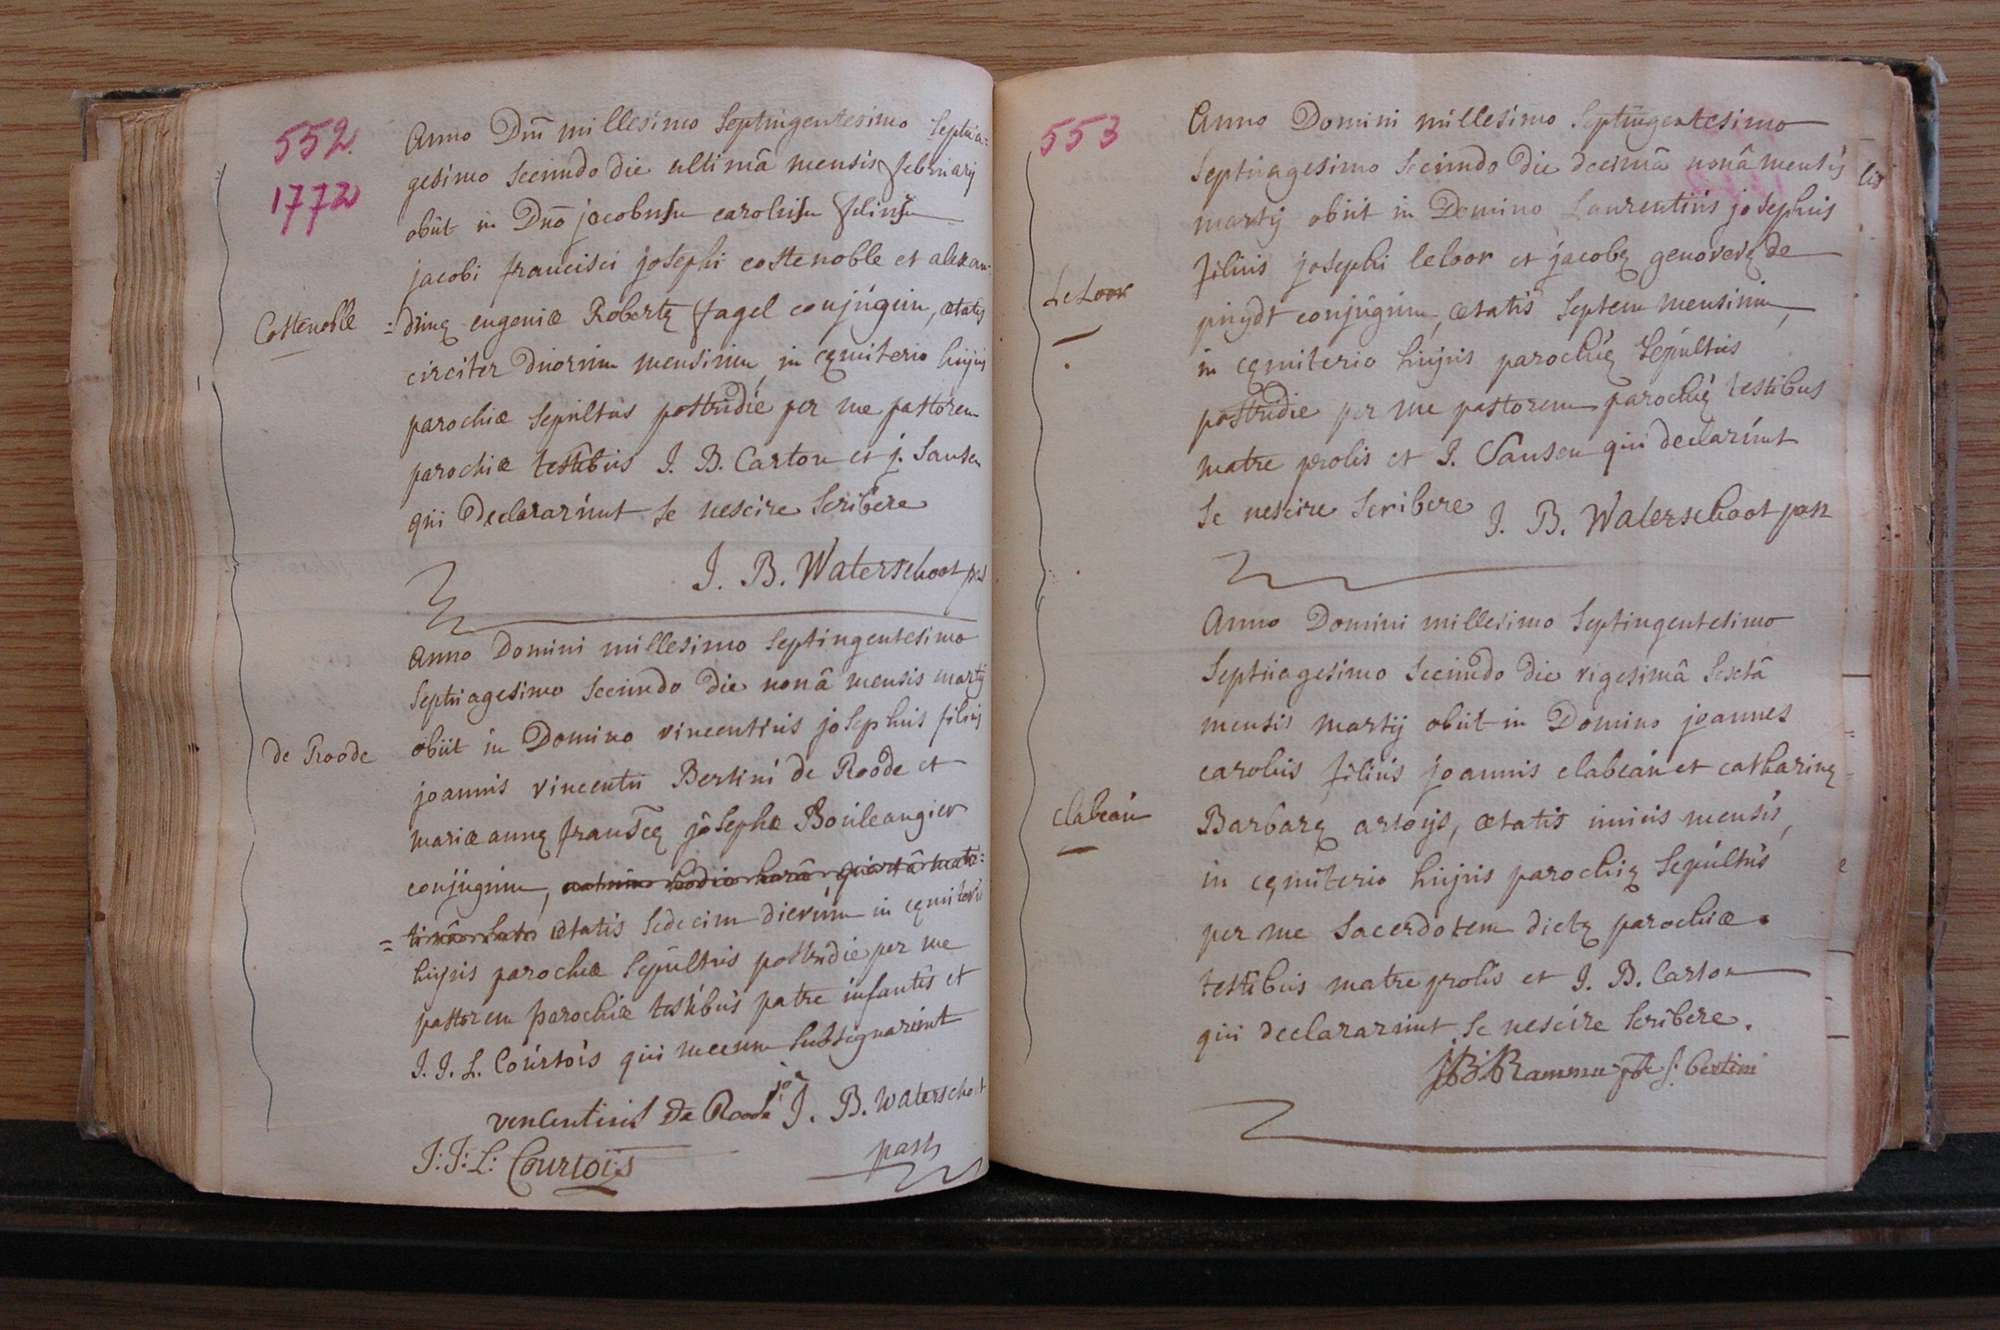 552
1772
Anno Dni millesimo Septingentesimo Septua=
gesimo Secundo die ultimâ mensis februarij
obiit in Dno jacobus carolus filius
jacobi francisci josephi costenoble et alexan-
Costenoble
=drinę eugeniæ Robertę fagel conjugum, ætatis
circiter duorum mensium in cęmiterio hujus
parochiæ sepultus postridie per me pastorem
parochiæ testibus J. B. Carton et j. Sansen
qui declararunt se nescire scribere
J. B. Waterschoot past
Anno Domini millesimo Septingentesimo
Septuagesimo Secundo die nonâ mensis martij
obiit in Domino vincentius josephus filius
de Roode
joannis vincentii Bertini de Roode et
mariæ annę franscę josephæ Bouleangier
conjugum, hodie horâ quartâ matu=
=tinâ ætatis sedecim dierum in cęmiterio
hujus parochiæ Sepultus postridie per me
pastorem parochiæ testibus patre infantis et
J. J. L. Courtois qui mecum subsignarunt
vencentius De Roode J. B. Waterschoot
J: J: L: Courtois
past
553
Anno Domini millesimo Septingentesimo
Septuagesimo Secundo die decimâ nonâ mensis
martij obiit in Domino Laurentius josephus
filius josephi leloor et jacobę genovevę de
LeLoor
pruydt conjugum, ætatis Septem mensium,
in cęmiterio hujus parochię Sepultus
postridie per me pastorem parochię testibus
matre prolis et J. Sansen qui declarunt
se nescire scribere J. B. Waterschoot past
Anno Domini millesimo Septingentesimo
Septuagesimo Secundo die vigesimâ Sextâ
mensis martij obiit in Domino joannes
carolus filius joannis clabeau et catharinę
clabeau
Barbarę artoijs, ætatis unius mensis,
in cęmiterio hujus parochię Sepultus
per me sacerdotem dictę parochiæ
testibus matre prolis et J. B. Carton
qui declararunt se nescire scribere.